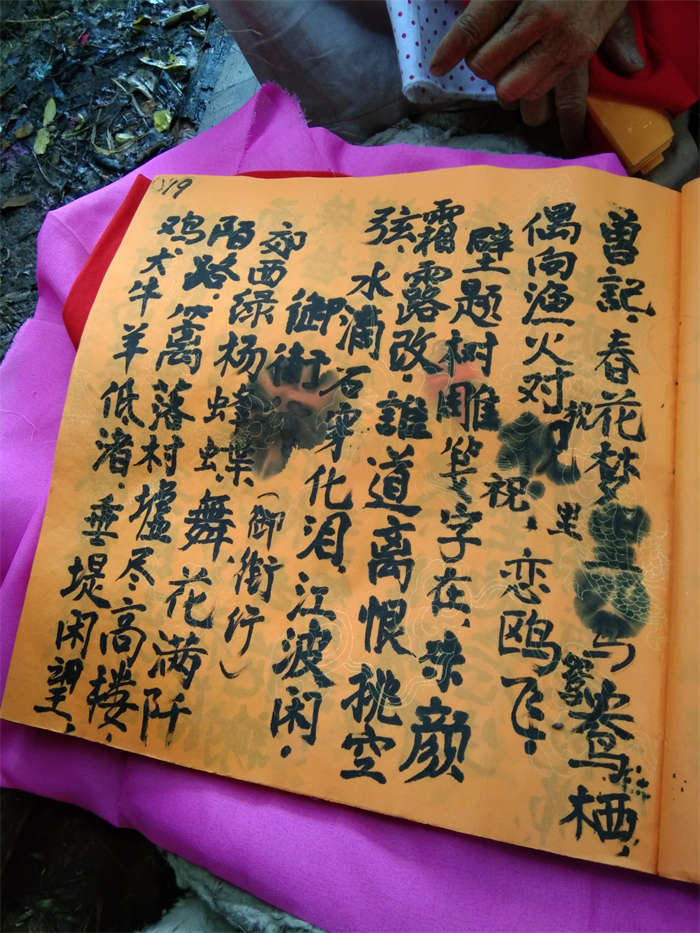 曾記，春花梦里鸳鸯栖，
偶向渔火对祝，恋鸥飞，
壁题树雕字在，颜
霜露改，誰道离恨挑空
弦，水滴石穿化泪，江波闲，
御街
（御街行）
郊西绿杨蜂蝶舞，花满阡
陌路，篱落村墟尽高楼，
鸡犬牛羊低渚，垂堤闲望，